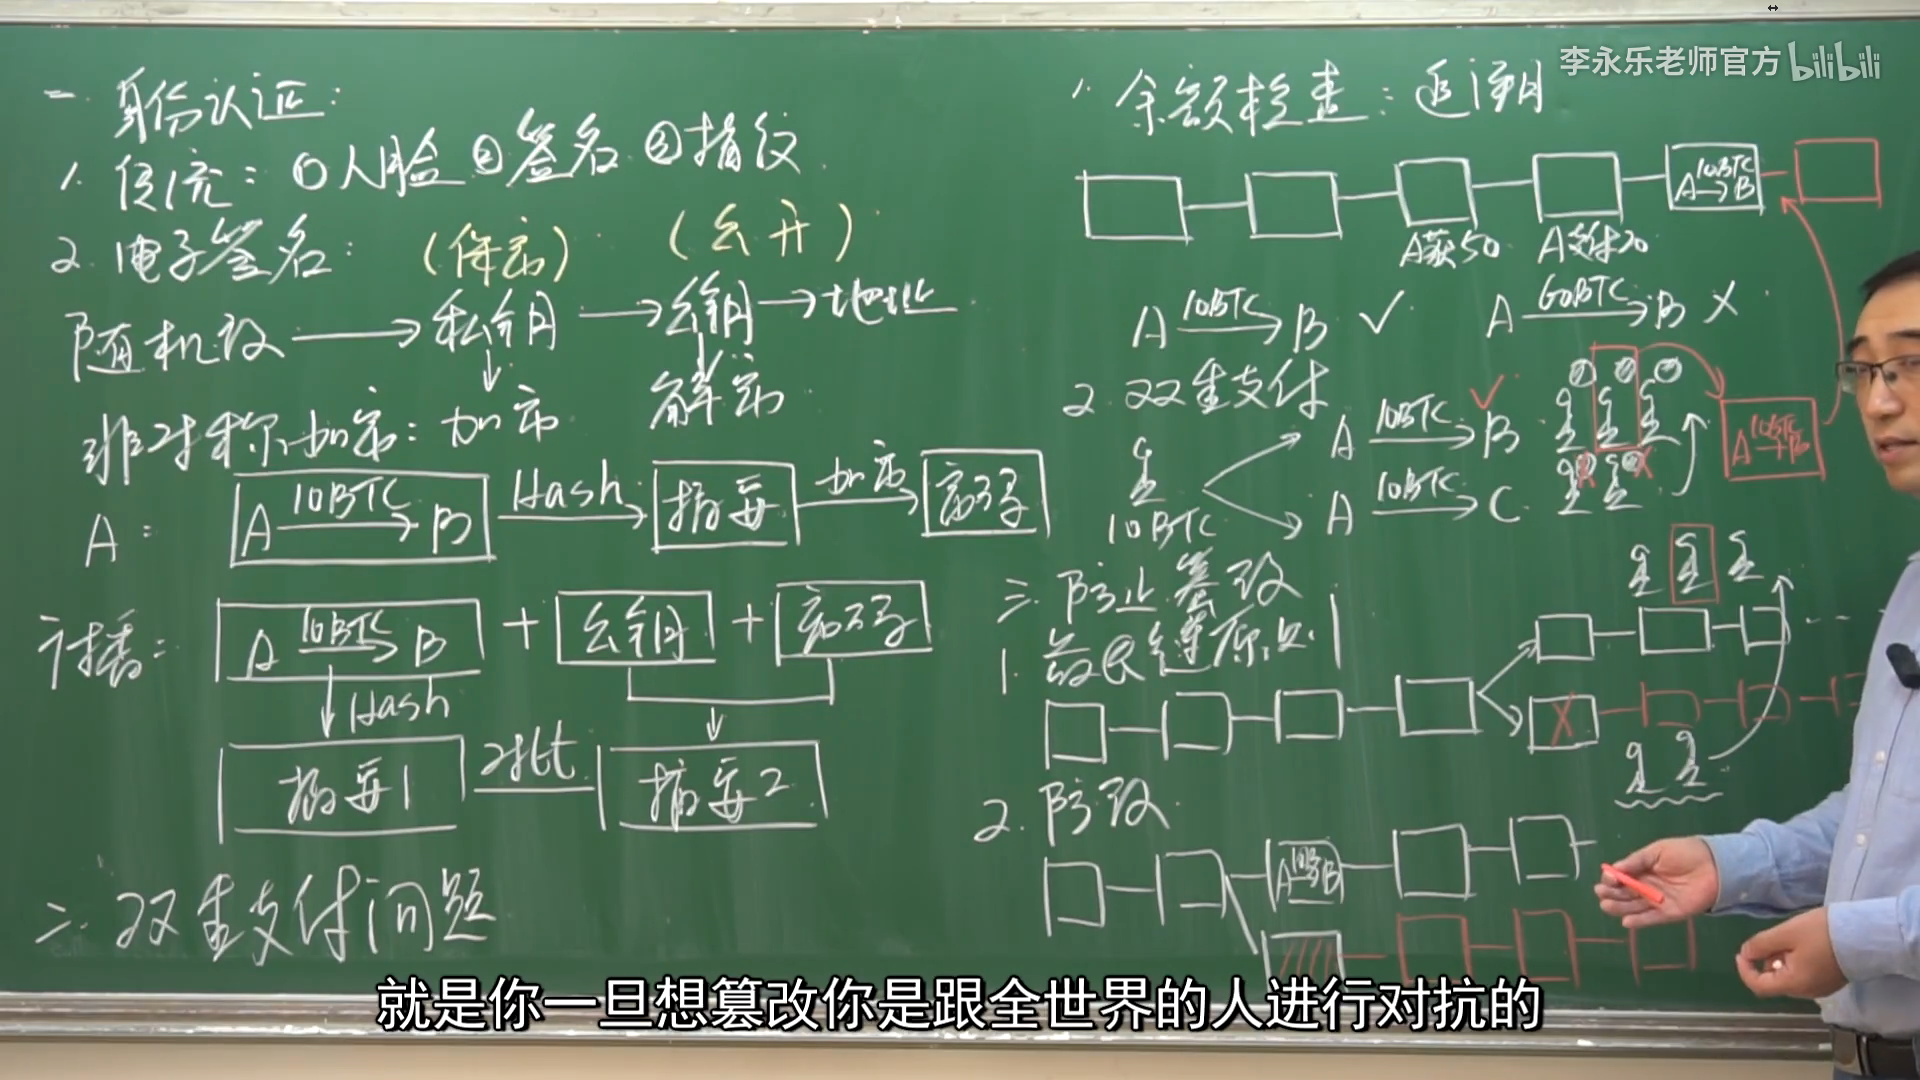 李永乐老师官方 bilibili
一. 身份认证:
1. 传统: ①人脸 ②签名 ③指纹
2. 电子签名: (保密) (公开)
随机数 → 私钥 → 公钥 → 地址
非对称加密: 加密 解密
A: A 10BTC→ B Hash→ 摘要 加密→ 密码
广播: A 10BTC→ B + 公钥 + 密码
Hash
摘要1 对比 摘要2
二. 双重支付问题
1. 余额检查: 追溯
A 10BTC→ B
A获50 A支付20
A 10BTC→ B ✓ A 60BTC→ B ×
2. 双重支付
A 10BTC→ B ✓
A 10BTC→ B
10BTC A 10BTC→ C
三. 防止篡改
1. 最长链原则
2. 防改
A 10B→ B
就是你一旦想篡改你是跟全世界的人进行对抗的